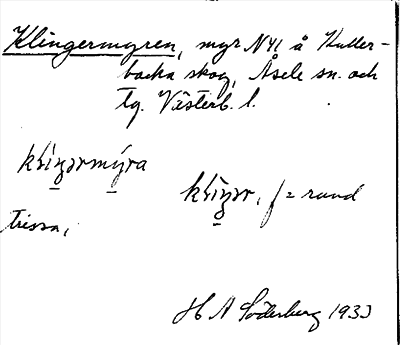 Klingermyren, myr N4( å Kuller-
backa skog, Åsele sn. och
tg. Västerb. l.
klíŋərmýra
klíŋər, f = rund
trissa,
H A Söderberg 1933